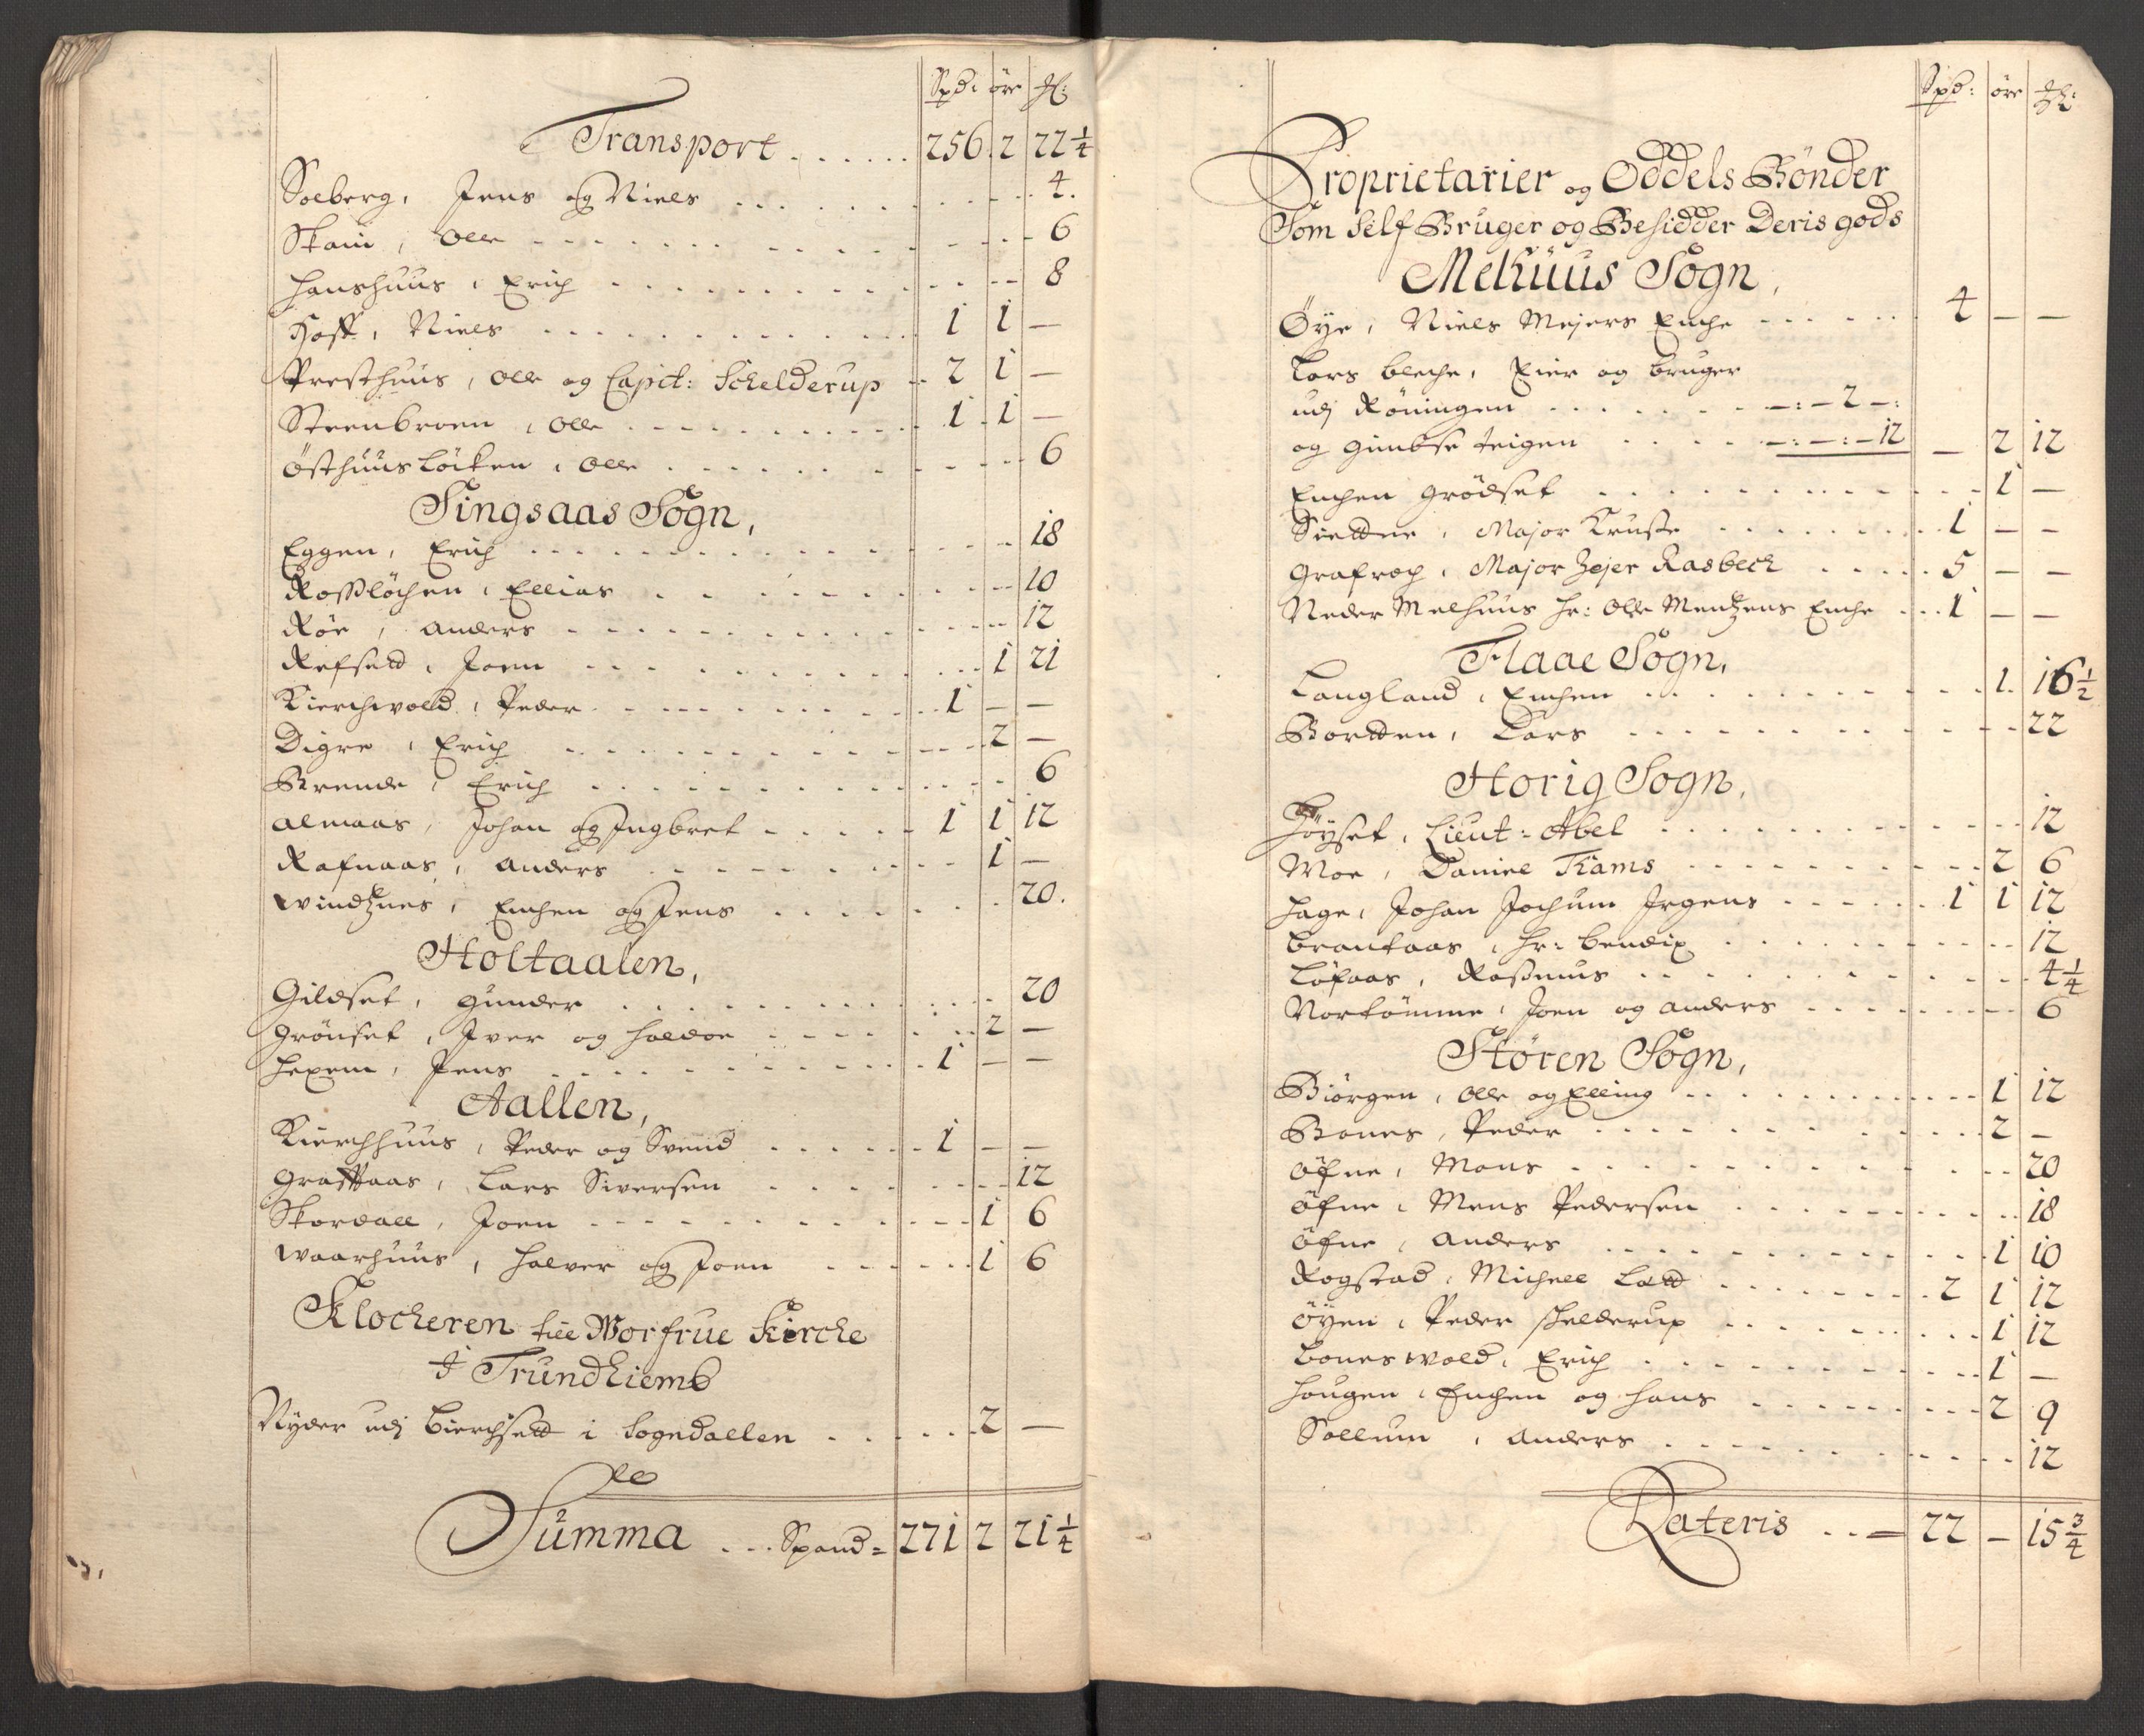 Spd: öre
Transport ...... 256. 2 22 1/4
Soeberg, Jens og Niels ... 4.
Skain, Olle ... 6
Hanshuus, Erich ... 8
Hoff, Niels ... 1 1 —
Presthuus, Olle og Capit: Schelderup 2 1 —
Steenbroen, Olle ... 1 . 1 —
Östhuus löcken, Olle ... 6
Singsaas Sogn,
Eggen, Erich ... 18
Rosslöchen, Ellias ... 10
Röe, Anders ... 12
Refsett, Joen ... 1 21
Kierchwold, Peder ... 1 — —
Digre, Erich ... 2 —
Brende, Erich ... 6
Almaas, Johan og Ingbret ... 1 1 12
Rafnaas, Anders ... 1 —
Windtznes, Enchen og Jens ... 20.
Holtaalen,
Gildset, Gunder ... 20
Grönset, Iver og Haldoe ... 2 —
Hexem, Jens ... 1 — —
Aallen,
Kierchhuus, Peder og Svend ... 1 — —
Graftaas, Lars Siversen ... 12
Skordall, Joen ... 1 6
Waarhuus, Halver og Joen ... 1 6
Klocheren till Worfrue Kirche
I Trundhiemb
Nyder udj Bierchsett i Sogndallen ... 2 —
Summa ... Spand = 271 2 21 1/4
Spd: öre
Proprietarier og Oddels Bönder
Som Self Bruger og Besidder Deris gods
Melhuus Sogn,
Öye, Niels Mejers Enche ... 4 — —
Lars Bleche, Eier og bruger
udj Röningen ... —:—2—:
og Gimbse teigen ... —:—:—12 — 2 12
Enchen Grödset ... 1 —
Sieldne, Major Kruse ... 1 — —
Grafroch, Major Zejer Rasbech ... 5 — —
Neder Melhuus Hr: Olle Mentzens Enche ... 1 — —
Flaae Sogn,
Langland, Enchen ... 1. 16 1/2
Bortten, Lars ... 22
Horig Sogn,
Höyset, Lieut: Abel ... 12
Moe, Daniel Trams ... 2 6
Hage, Johan Jochum Irgens ... 1 1 12
Brantaas, Hr: Bendix ... 12
Löfaas, Rasmus ... 4 1/4
Nortömme, Joen og Anders ... 6
Stören Sogn,
Biörgen, Olle og Elling ... 1 12
Bones, Peder ... 2 —
Öfne, Mons ... 20
Öfne, Mens Pedersen ... 18
Öfne, Anders ... 1 10
Rogstad, Michell Ladt ... 2 1 12
Öyen, Peder Schelderup ... 1 12
Bones wold, Erich ... 1 —
Hougen, Enchen og Hans ... 2 9
Sollum, Anders ... 12
Lateris ..— 22 — 15 3/4